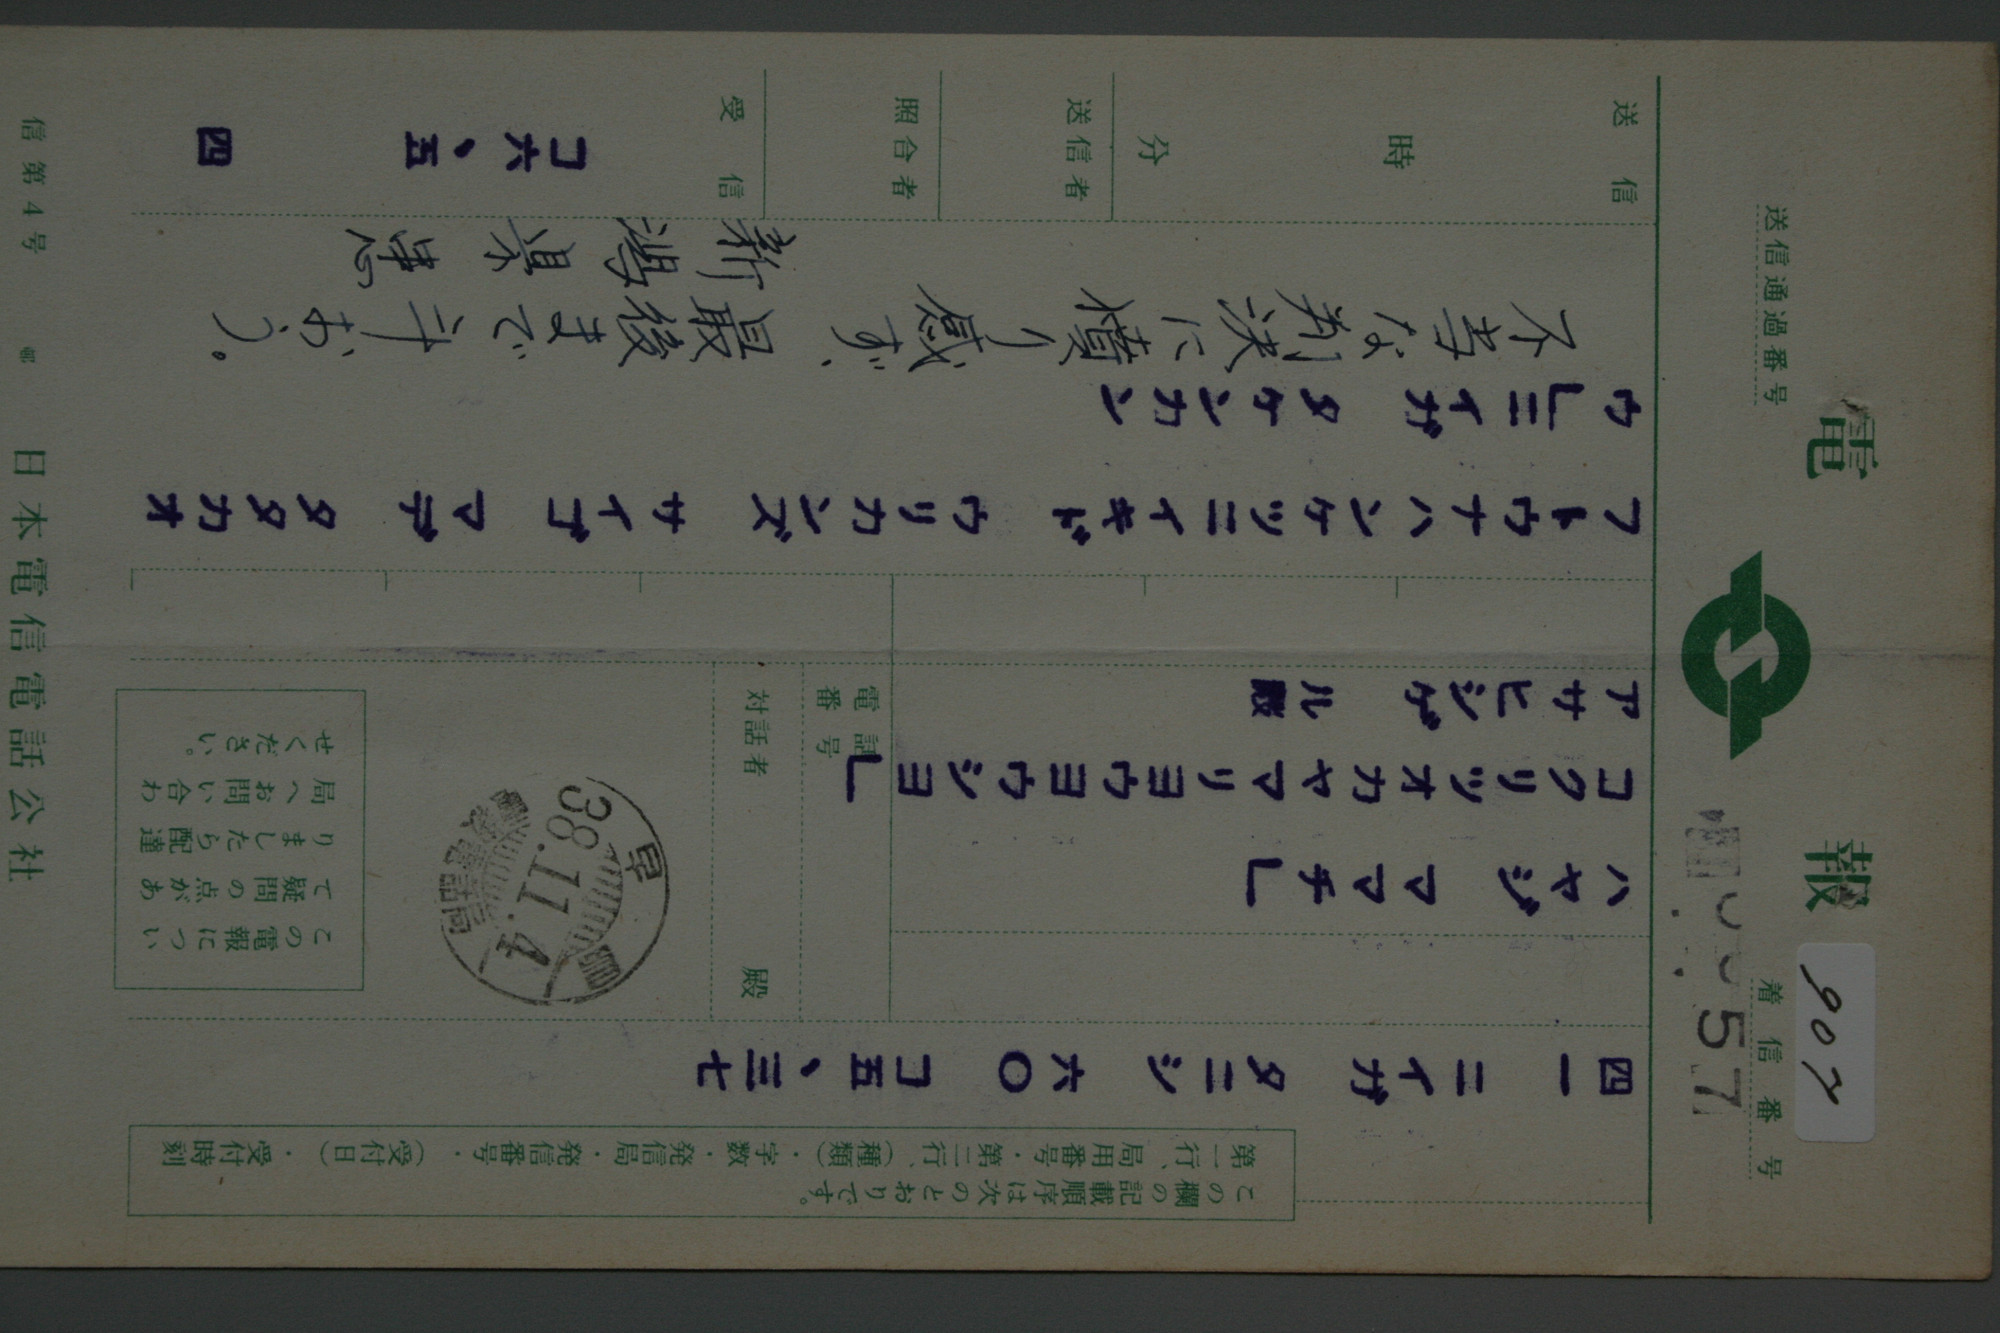 電報
送信通過番号
着信番号
907
57
この欄の記載順序は次のとおりです。
第一行、局用番号・第二行、(種類)・字数・発信局・発信番号・(受付日)・受付時刻
四一 ニイガタニシ 六〇 コ五、三七
ハヤジママチ」
コクリツオカヤマリヨウヨウシヨ」
アサヒシゲル殿
電話番号
対話者 殿
早島
38.11.4
電報電話局
この電報につい
て疑問の点があ
りましたら配達
局へお問い合わ
せください。
フトウナハンケツニイキドウリカンズ サイゴマデ タタカオ
ウ」ニイガタケンカン
不当な判決に憤り感ず、最後まで斗おう。
新潟県患
送信
時
分
送信者
照合者
受信
コ六、五四
信第4号
日本電信電話公社